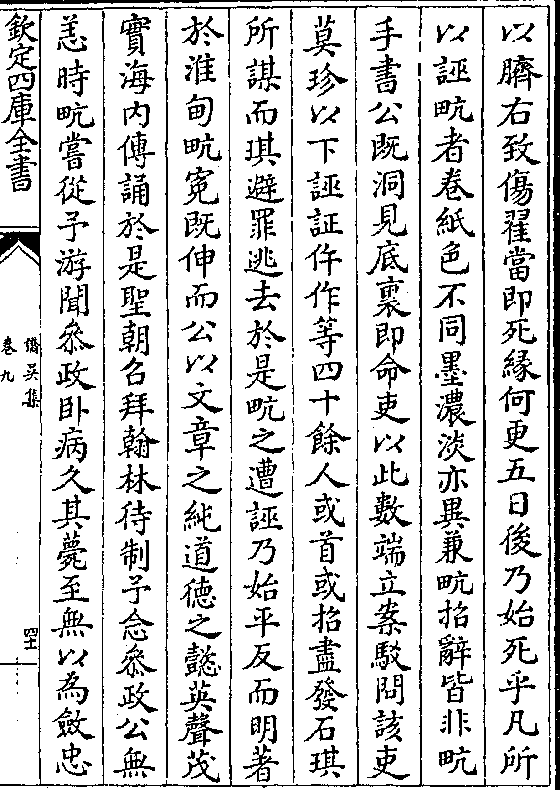 以臍右致傷翟當即死縁何更五日後乃始死乎凡所
以誣㽘者卷紙色不同墨濃淡亦異兼㽘招辭皆非㽘
手書公既洞見底裏即命吏以此數端立案駁問該吏
莫珍以下誣証仵作等四十餘人或首或招盡發石琪
所謀而琪避罪逃去於是㽘之遭誣乃始平反而明著
於淮甸㽘寃既伸而公以文章之純道德之懿英聲茂
實海内傳誦於是聖朝召拜翰林待制予念叅政公無
恙時㽘嘗從予游聞叅政卧病久其薨至無以為斂忠
欽定四庫全書
僑吳集
卷九
四十